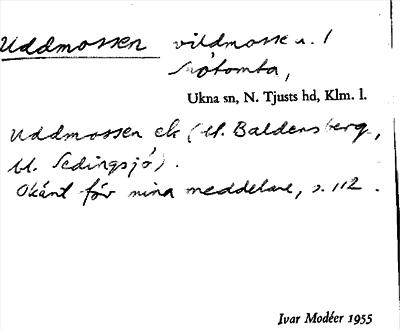 Uddmossen vildmosse u. /
Snótomta,
Ukna sn, N. Tjusts hd, Klm. l.
Uddmossen ek (bl. Baldersberg,
bl. Sedingsjö).
Okänt för mina meddelare, s. 112.
Ivar Modéer 1955